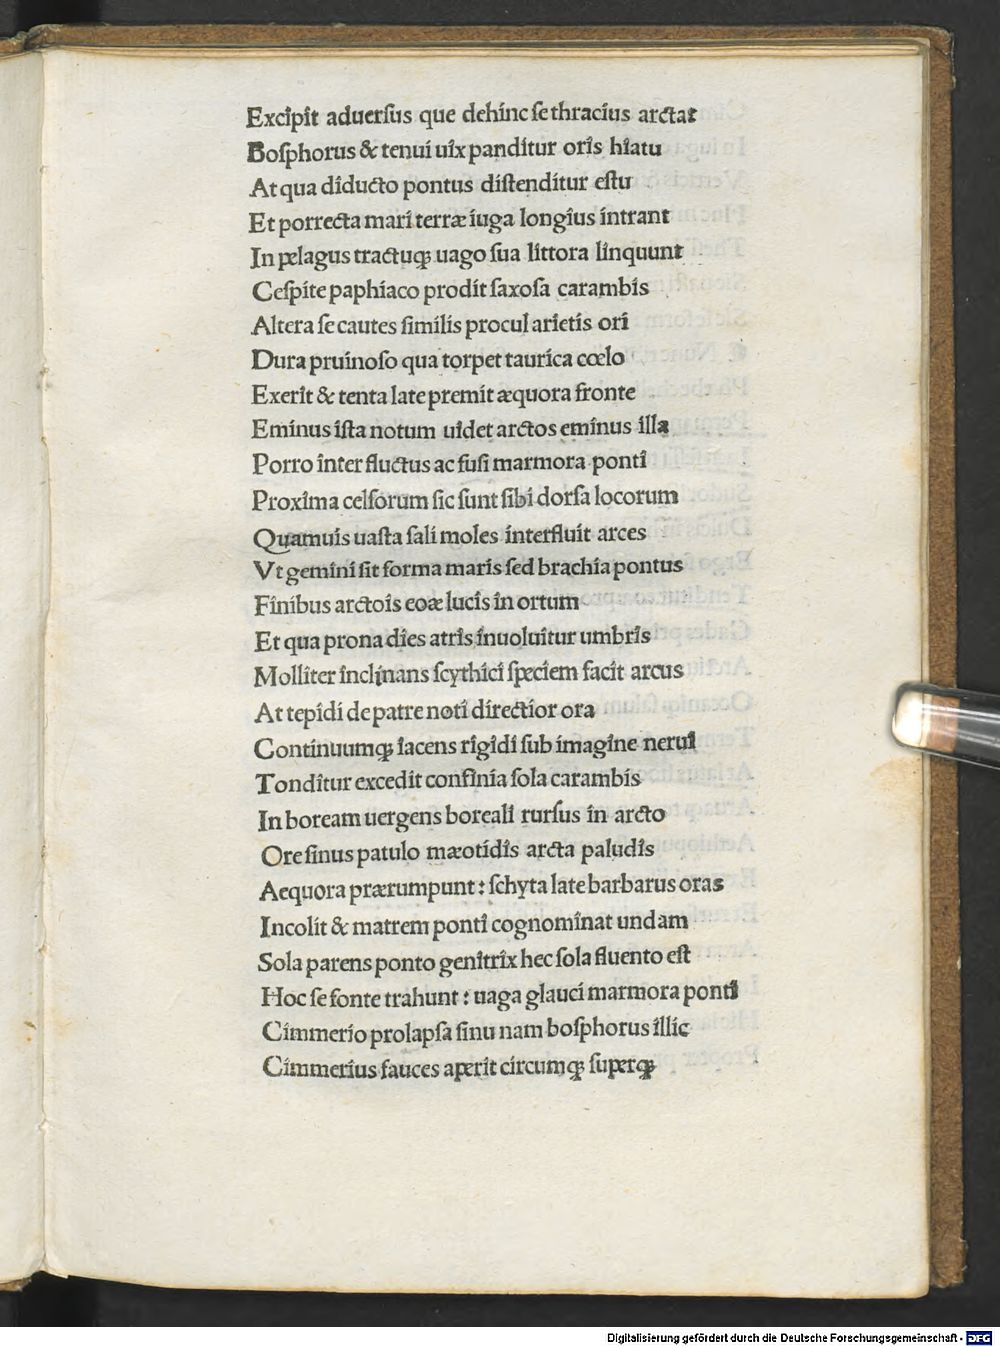 Excipit aduerſus que dehinc ſe thracius arctat
Boſphorus & tenui uix panditur oris hiatu
At qua diducto pontus diſtenditur eſtu
Et porrecta mari terræ iuga longius intrant
In pelagus tractuqꝫ uago ſua littora linquunt
Ceſpite paphiaco prodit ſaxoſa carambis
Altera ſe cautes ſimilis procul arietis ori
Dura pruinoſo qua torpet taurica cœlo
Exerit & tenta late premit æquora fronte
Eminus iſta notum uidet arctos eminus illa
Porro inter fluctus ac fuſi marmora ponti
Proxima celſorum ſic ſunt ſibi dorſa locorum
Quamuis uaſta ſali moles interfluit arces
Vt gemini ſit forma maris ſed brachia pontus
Finibus arctois eoæ lucis in ortum
Et qua prona dies atris inuoluitur umbris
Molliter inclinans ſcythici ſpeciem facit arcus
At tepidi de patre noti directior ora
Continuumqꝫ iacens rigidi ſub imagine nerui
Tonditur excedit confinia ſola carambis
In boream uergens boreali rurſus in arcto
Ore ſinus patulo mæotidis arcta paludis
Aequora prærumpunt: ſchyta late barbarus oras
Incolit & matrem ponti cognominat undam
Sola parens ponto genitrix hec ſola fluento eſt
Hoc ſe fonte trahunt: uaga glauci marmora ponti
Cimmerio prolapſa ſinu nam boſphorus illic
Cimmerius fauces aperit circumqꝫ ſuperqꝫ
Digitalisierung gefördert durch die Deutsche Forschungsgemeinschaft - DFG